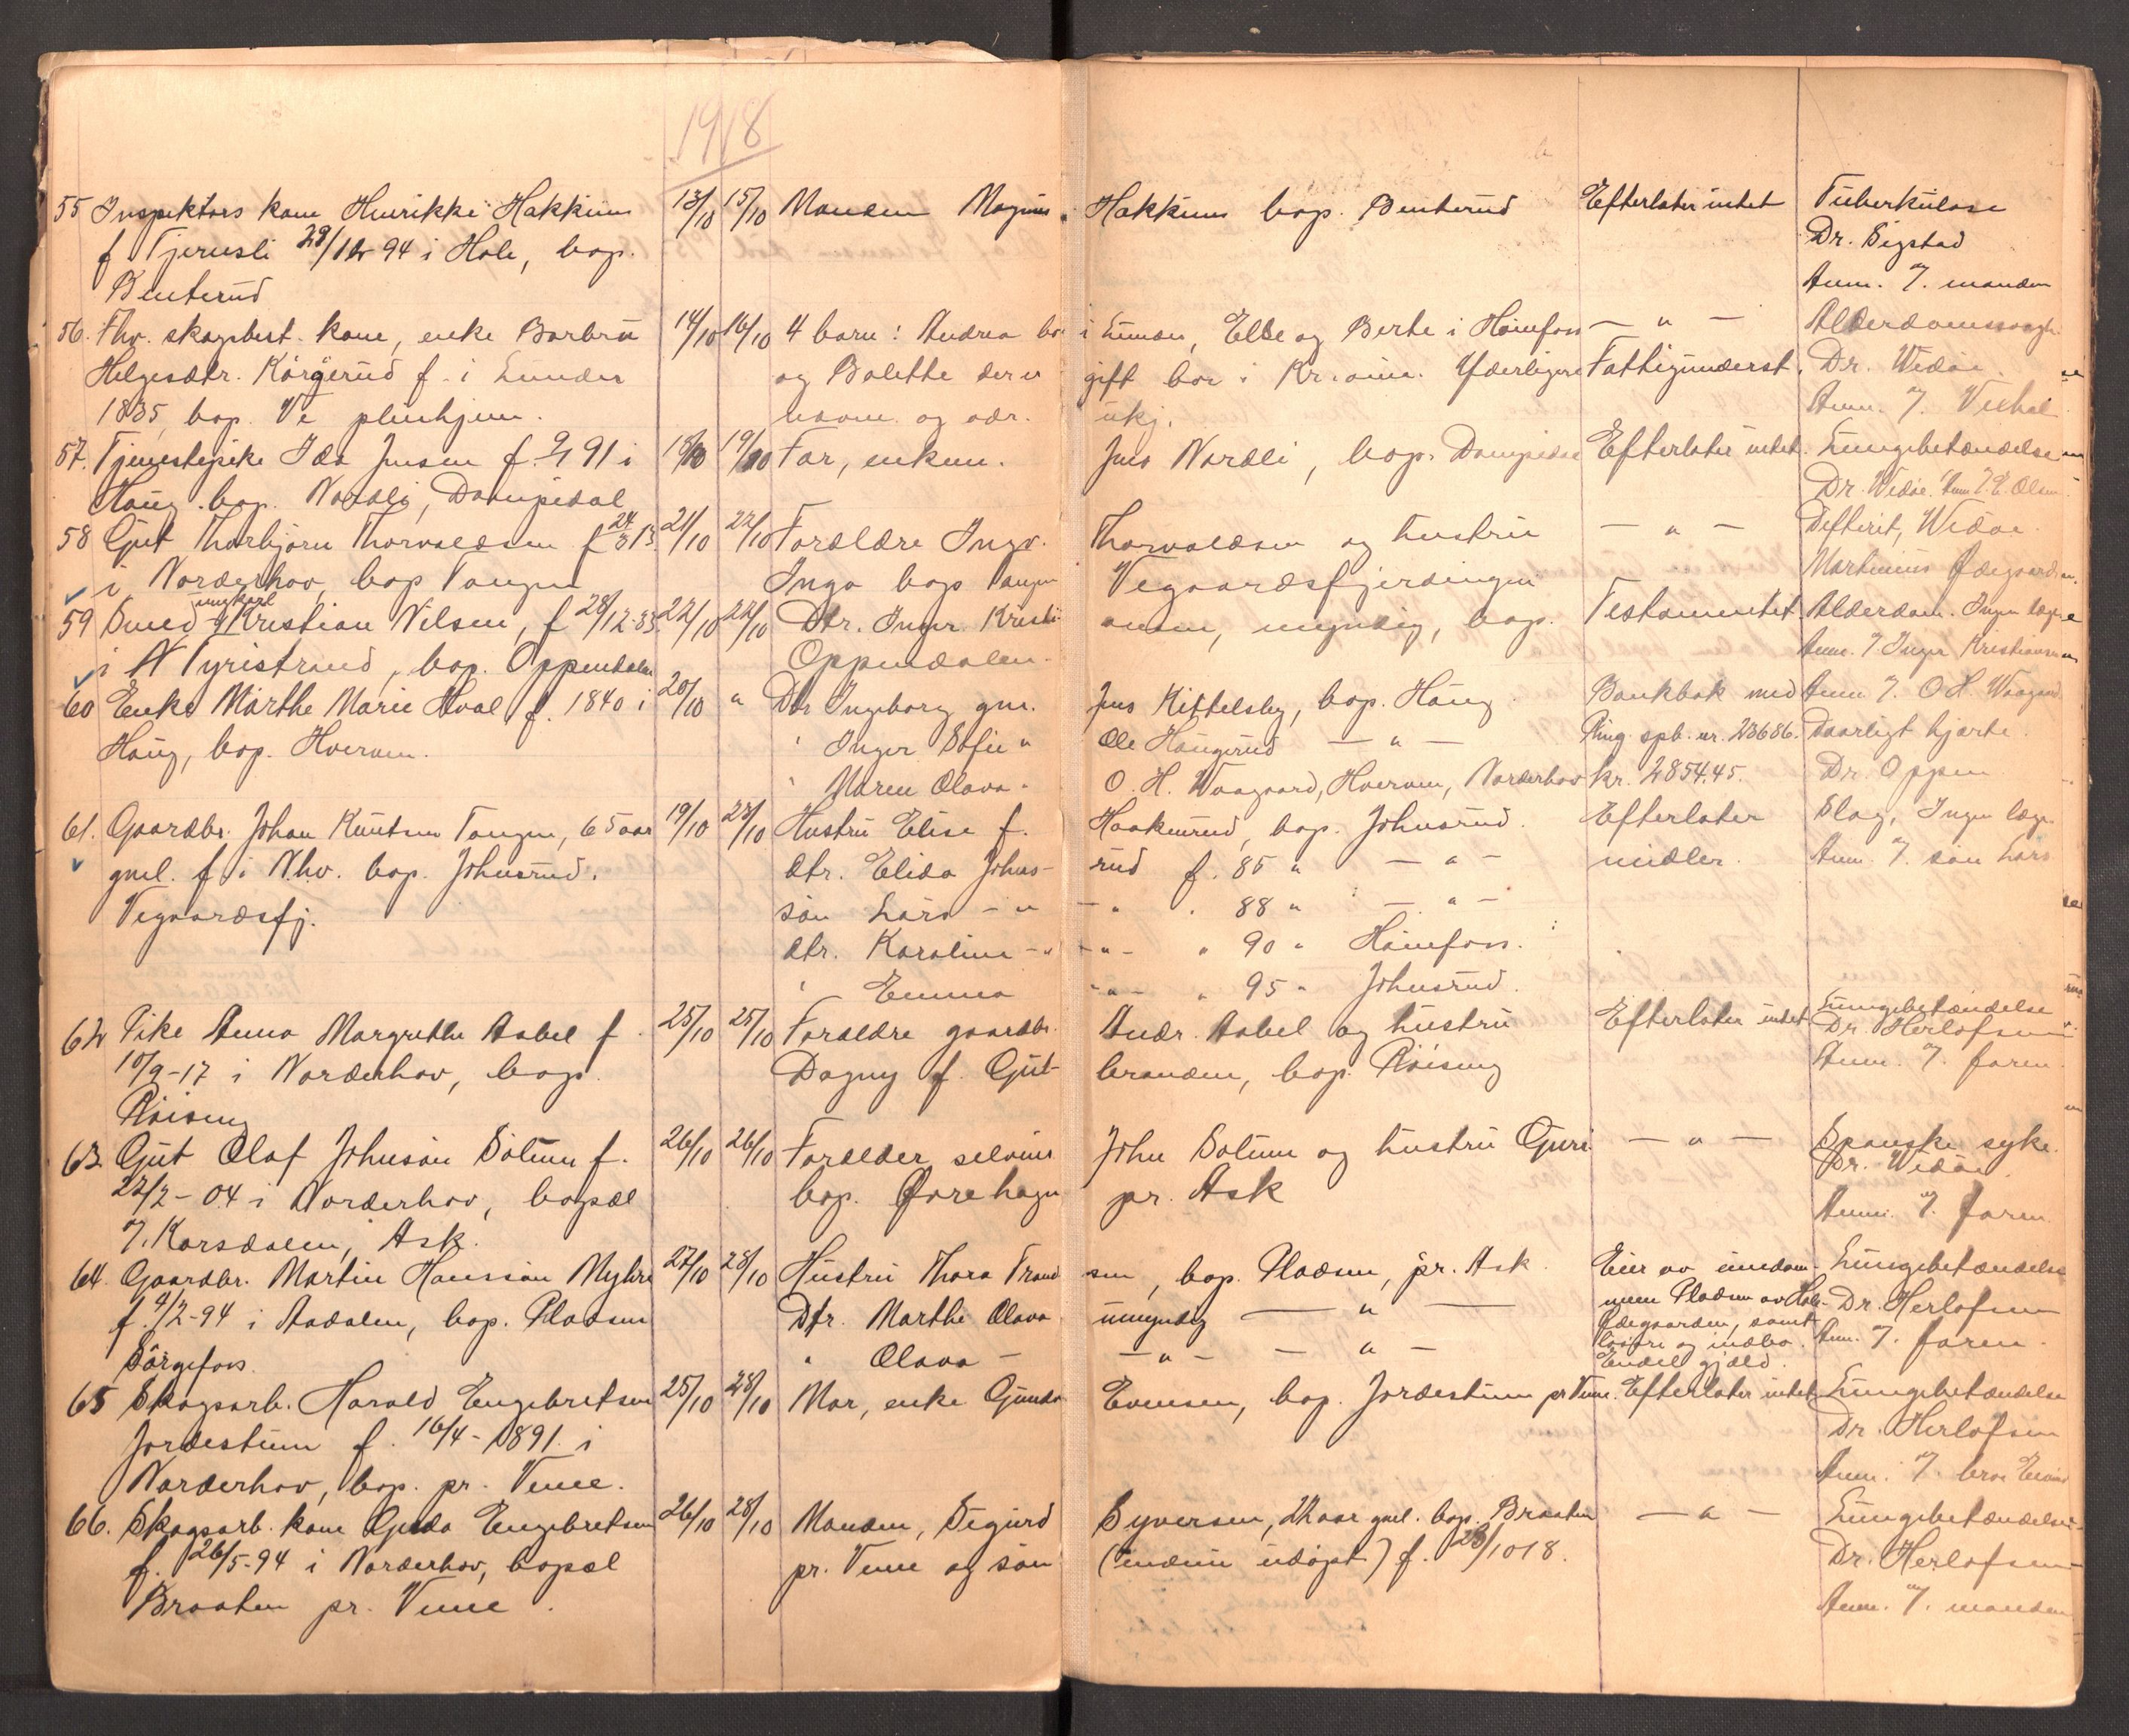 1918
55 Inspektørs kone Henrikke Hakkium 13/10 15/10 Manden Magnus Hakkium bop. Benterud Efterlater intet Tuberkulose
f. Tjernsli 29/12 94 i Hole, bop. Dr. Sigstad
Benterud Anm. af. manden
56. Fhv. skogbest. kone, enke Barbru 14/10 16/10 4 barn: Andrea bor i Lunder, Else og Berte i Hønefoss — " — Alderdomssvagh.
Helgesdtr. Körgerud f. i Lunder og Bolette der er gift bor i Kr.ania. Yderligere Fattigunderst. Dr. Widøe
1835, bop. Ve pleiehjem. navne og adr. ukj. Anm. af.
57. Tjenestepike Ida Jensen f. 91 i 18/10 19/10 Far, enkem. Jens Nordli, bop. Dampedal Efterlater intet Lungebetændelse
Haug bop. Nordli, Dampedal Dr. Widøe. Anm. E. Olsen
58 Gut Thorbjørn Thorvaldsen f. 24/3 13 21/10 22/10 Forældre Ingv. Thorvaldsen og hustru — " — Difterit, Widøe
i Norderhov, bop Tangen Inga bop Tangen Vegaardsfjerdingen Martinius Ødegaard
59 Smed ungkarl Kristian Nilsen, f 28/12-35 22/10 22/10 Dtr. Inger Kristiansen, myndig, bop. Testamentet. Alderdom. Ingen læge
i N Tyristrand, bop. Oppendalen Oppendalen. Anm. af Inger Kristiansen
60 Enke Marthe Marie Hval f. 1840 i 20/10 " Dtr Ingeborg gm. Jens Kittelsby, bop. Haug Bankbok med Anm af. O H. Waagaard
Haug, bop. Hverven. " Inger Sofie " Ole Haugerud — " — Ring. spb. nr. 23686. Daarligt hjerte.
" Maren Olava " O. H. Waagaard, Hverven, Norderhov kr. 2854.45. Dr. Oppen
61. Gaardbr. Johan Knutsen Tangen, 65 aar 19/10 23/10 Hustru Elise f. Haakenrud, bop. Johnsrud. Efterlater Slag, Ingen læge
gml. f. i Nhv. bop. Johnsrud. dtr. Elida Johnsrud f. 85 " — " — midler. Anm. af. søn Lars
Vegaardsfj. søn Lars — " — " 88 " — " —
dtr. Karoline — " — " 90 " Hønefoss.
" Emma — " — " 95 " Johnsrud.
62 Pike Anna Margrethe Aabel f. 25/10 25/10 Forældre gaardbr. Andr. Aabel og hustru Efterlater intet Lungebetændelse
10/9-17 i Norderhov, bop. Dagny f. Gutbrandsen, bop. Röising Dr. Herlofsen
Röising Anm. af. faren
63. Gut Olaf Johnsön Solum f. 26/10 26/10 Forælder selveier John Solum og hustru Guri — " — Spanske syke.
22/2-04 i Norderhov, bopæl bop. Øvrehagen pr. Ask Dr. Widøe
Korsdalen, Ask. Anm. af. faren
64. Gaardbr. Martin Hanssön Myhre 27/10 28/10 Hustru Thora Trondsen, bop. Pladsen, pr. Ask. Eier av eiendom- Lungebetændelse
f. 4/2-94 i Aadalen, bop. Pladsen Dtr. Marthe Olava umyndig — " — men Pladsen av Hole- Dr. Herlofsen
Sørgefoss. " Olava — " — — " — Ødegaarden, samt Anm. af. faren
løsøre og indbo.
Endel gjæld.
65 Skogsarb. Harald Engebretsen 25/10 28/10 Mor, enke Gunda Evensen, bop. Jordestuen pr Veme. Efterlater intet Lungebetændelse
Jordestuen f. 16/4-1891 i Dr. Herlofsen
Norderhov, bop. pr. Veme. Anm. af. bror
66. Skogsarb. kone Gjuda Engebretsen 26/10 28/10 Manden, Sigurd Syversen, bop. Braaten — " — Lungebetændelse
f. 26/5-94 i Norderhov, bopæl pr. Veme og søn (endnu udøpt) f. 23/10 18. Dr. Herlofsen
Braaten pr. Veme. Anm. af. manden